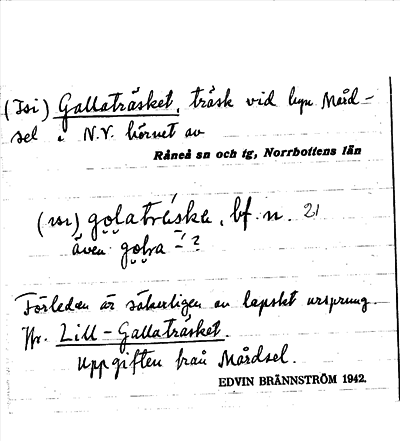 (Isi) Gallaträsket, träsk vid byn Mård-
sel i N.V. hörnet av
Råneå sn och tg, Norrbottens län
(ɪsɪ) go̬laträska, bf. n. 21
även go̬lra - ?
Förleden är säkerligen av lapskt ursprung
Jfr. Lill-Gallaträsket.
Uppgiften från Mårdsel.
EDVIN BRÄNNSTRÖM 1942.